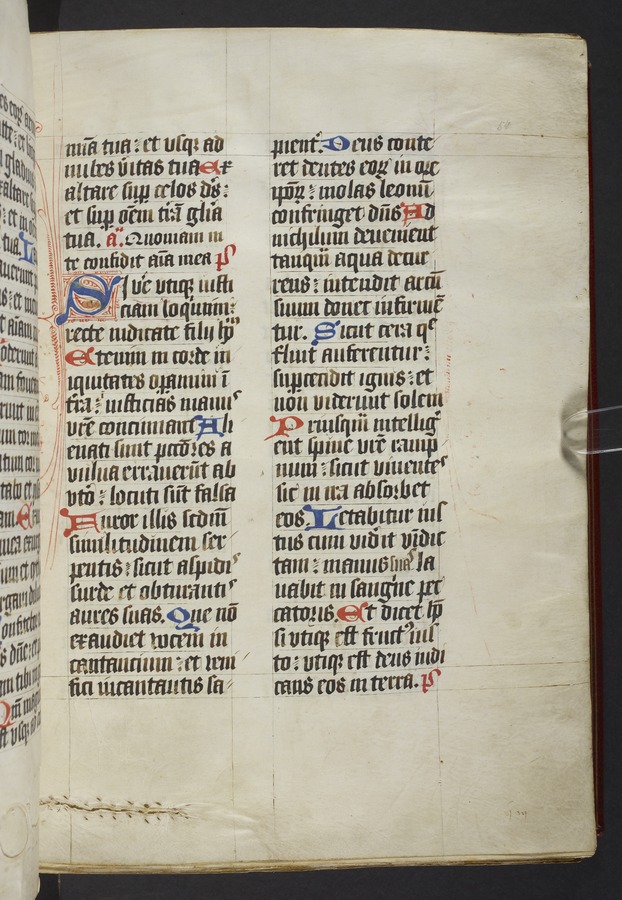 mīa tua : et vsqꝫ ad
nubes v̄itas tua Ex
altare sup̄ celos ds̄ :
et sup̄ oēm t̄rā gl̄ia
tua. a̅. Quoniam in
te confidit aīa mea p̄s
SI ve̅ vtiqꝫ iusti
ciam loq̄mini :
recte iudicate filij ho̅
Etenim in corde in
iquitates op̄amini ī
t̄ra : iusticias manꝰ
vr̄e concinnant Ali
enati sunt pcc̄o̅es a
vulua errauerūt ab
vt̄o : locuti sūt falsa
Furor illis scdm̄
similitudinem ser
pentis : sicut aspidꝭ
surde et obturantꝭ
aures suas. Que nō
exaudiet vocem in
cantancium : et veni
fici incantantis sa-
pient̄. Deus conte
ret dentes eoꝝ in ore
ip̄oꝝ : molas leonū
confringet dn̄s Ad
nichilum deuenient
tanqū aqua decur
rens : intendit arcū
suum donec infirmē
tur. Sicut cera q̄
fluit auferentur :
sup̄cecidit ignis : et
non viderunt solem
Priusqū intellig
ent spine vr̄e rampn̄
num : sicut viuentes
sic in ira absorbet
eos. Letabitur ius
tus cum vidit vīdic
tam : manus suas la
uabit in sangūe pec
catoris. Et dicet ho̅
si vtiqꝫ est fructꝰ ius
to : vtiqꝫ est deus iudi
cans eos in terra. p̄s